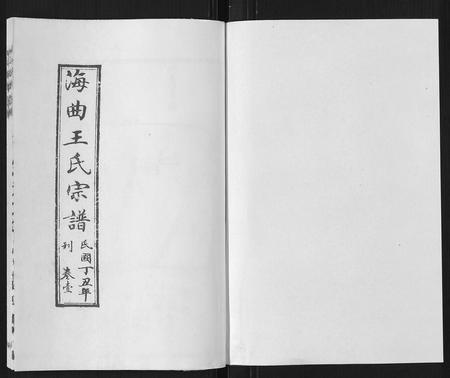 海曲王氏宗譜
民國丁丑年
刊 卷壹